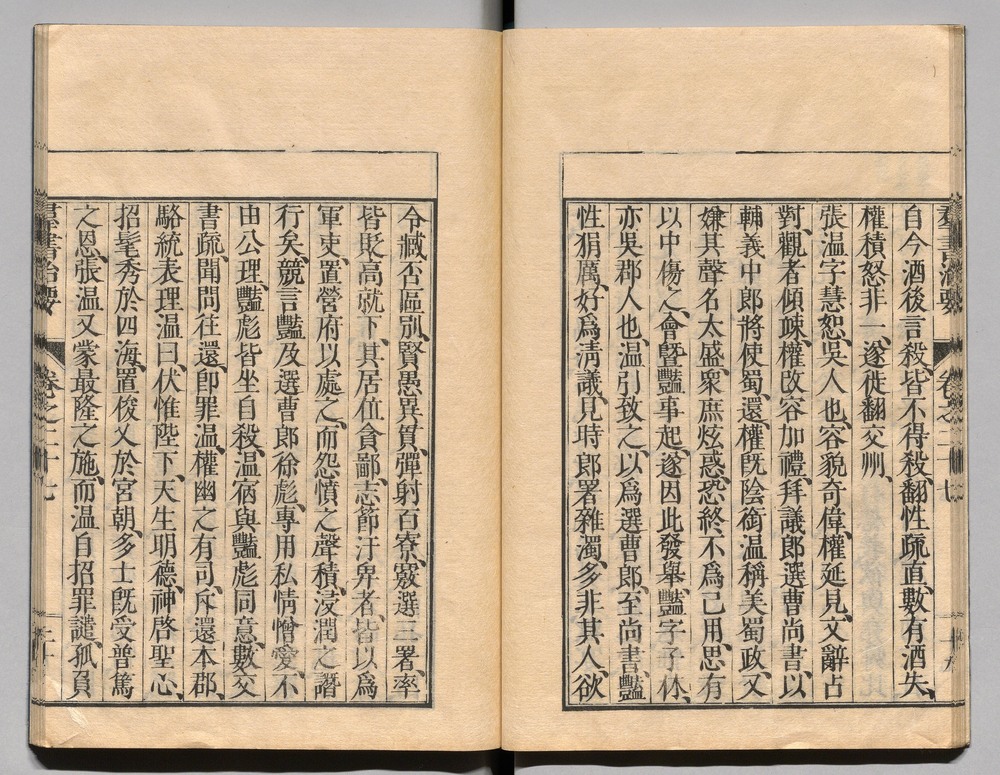 羣書治要 卷之二十七 十九
自今酒後言殺、皆不得殺、翻性疏直、數有酒失、
權積怒非一、遂徙翻交州、
張溫字惠恕、吳人也、容貌奇偉、權延見、文辭占
對、觀者傾竦、權改容加禮、拜議郎選曹尚書、以
輔義中郎將使蜀、還、權既陰銜溫稱美蜀政、又
嫌其聲名太盛、衆庶炫惑、恐終不爲己用、思有
以中傷之、會暨豔事起、遂因此發舉、豔字子休、
亦吳郡人也、溫引致之、以爲選曹郎、至尚書、豔
性狷厲、好爲淸議、見時郎署雜濁、多非其人、欲
令臧否區別、賢愚異貫、彈射百寮、覈選三署、率
皆貶高就下、其居位貪鄙、志節汙卑者、皆以爲
軍吏、置營府以處之、而怨憤之聲積、浸潤之譖
行矣、競言豔及選曹郎徐彪、專用私情憎愛、不
由公理、豔彪皆坐自殺、溫宿與豔彪同意、數交
書疏、聞問往還、卽罪溫、權幽之有司、斥還本郡、
駱統表理溫曰、伏惟陛下、天生明德、神啓聖心、
招髦秀於四海、置俊乂於宮朝、多士既受普篤
之恩、張溫又蒙最隆之施、而溫自招罪譴、孤負
羣書治要 卷之二十七 二十